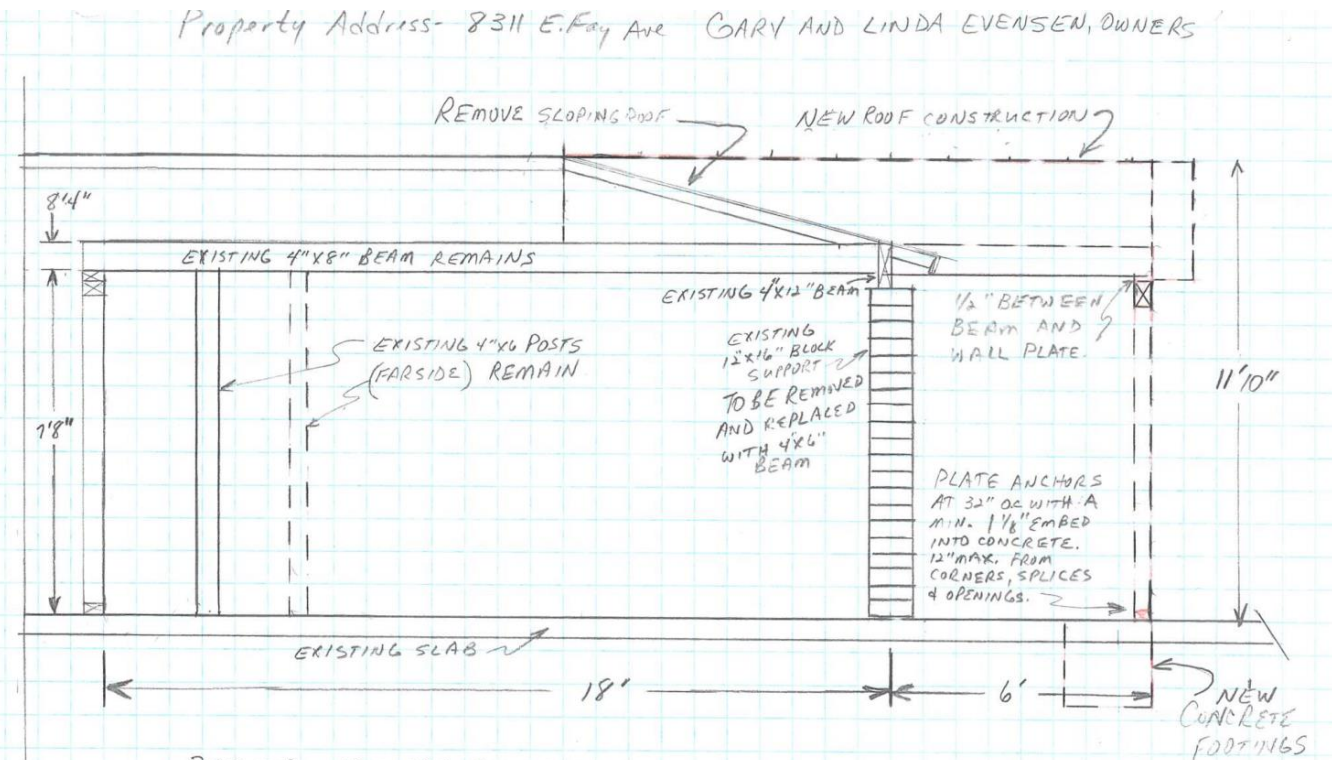 Property Address- 8311 E. Fay Ave GARY AND LINDA EVENSEN, OWNERS
REMOVE SLOPING ROOF
NEW ROOF CONSTRUCTION
8'4"
EXISTING 4"X8" BEAM REMAINS
EXISTING 4"X12" BEAM
1/2" BETWEEN
BEAM AND
WALL PLATE.
EXISTING 4"X6 POSTS
(FARSIDE) REMAIN
EXISTING
12"X16" BLOCK
SUPPORT
TO BE REMOVED
AND REPLACED
WITH 4"X6"
BEAM
11'10"
7'8"
PLATE ANCHORS
AT 32" OC WITH A
MIN. 1 1/8" EMBED
INTO CONCRETE.
12" MAX. FROM
CORNERS, SPLICES
& OPENINGS.
EXISTING SLAB
18'
6'
NEW
CONCRETE
FOOTINGS